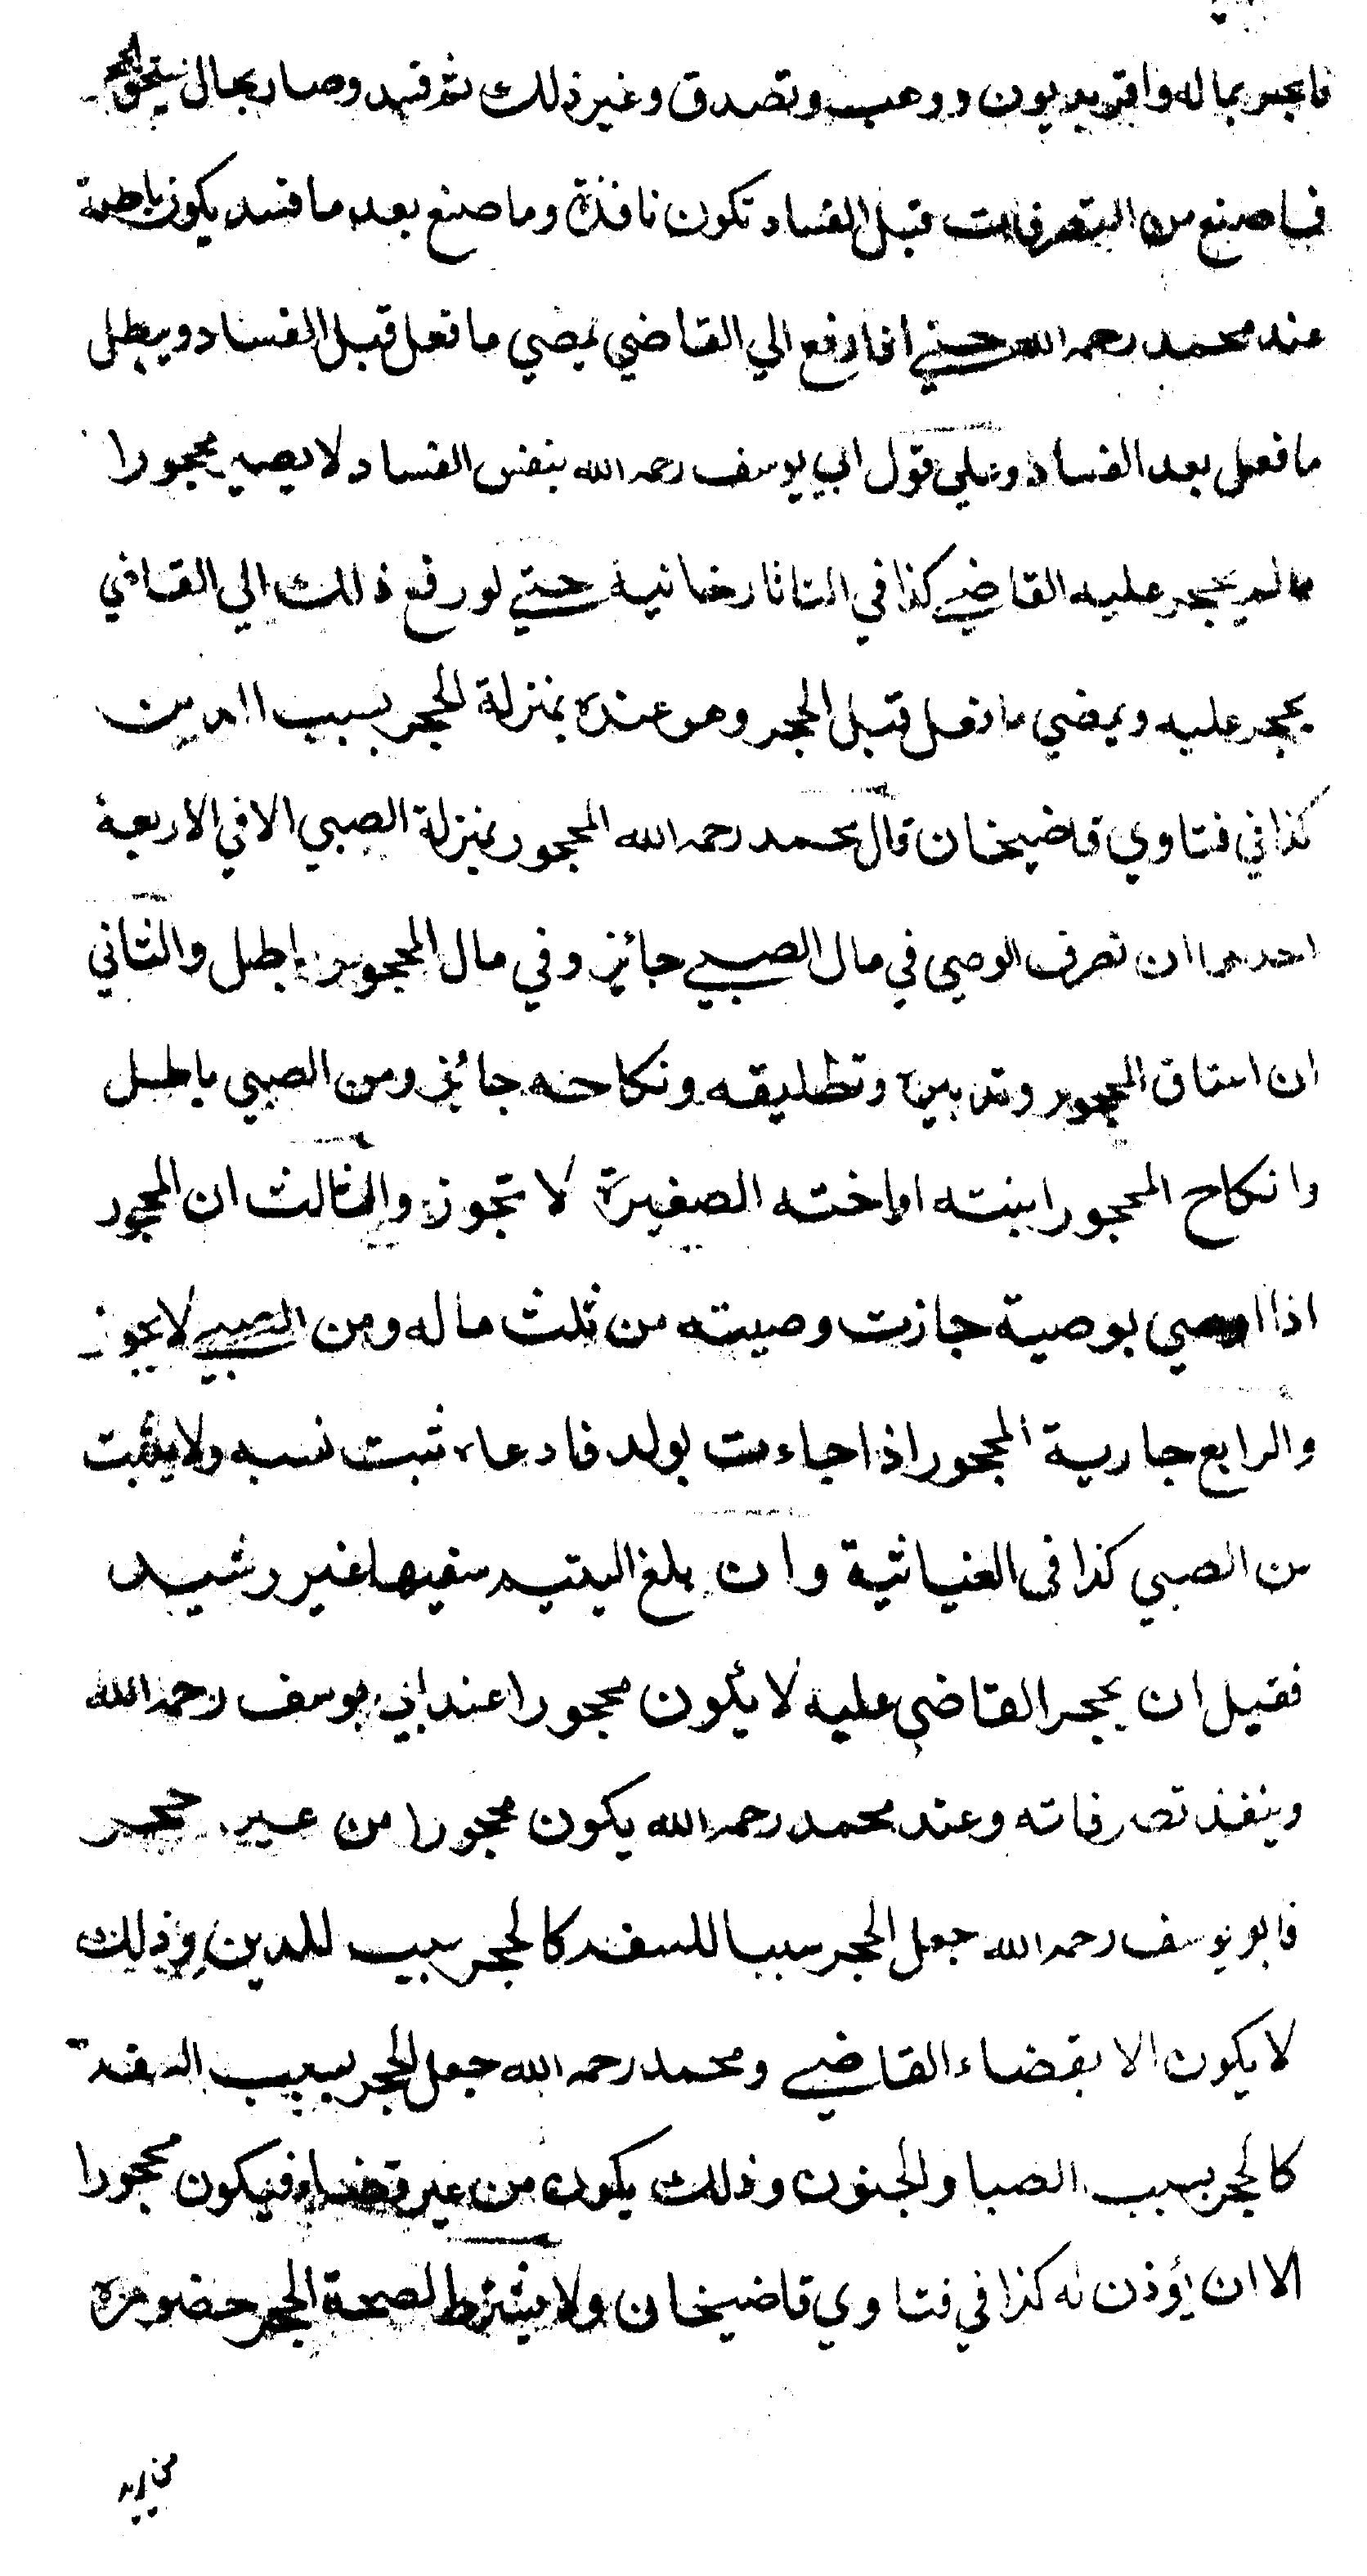 فاتجر بماله واقر بديون ووهب وتصدق وغير ذلك ثم فسد وصار بحال يستحق الحجر
فما صنع من التصرفات قبل الفساد تكون نافذة وما صنع بعد ما فسد يكون باطلة
عند محمد رحمه الله حتي اذا رفع الي القاضي يمضي ما فعل قبل الفساد ويبطل
ما فعل بعد الفساد وعلي قول ابي يوسف رحمه الله بنفس الفساد لا يصير محجورا
مالم يحجر عليه القاضي كذا في التاتارخانية حتي لو رفع ذلك الي القاضي
يحجر عليه ويمضي ما فعل قبل الحجر وهو عنده بمنزلة الحجر بسبب الدين
كذا في فتاوي قاضيخان قال محمد رحمه الله المحجور بمنزلة الصبي الا في الاربعة
احدهما ان تصرف الوصي في مال الصبي جائز وفي مال المحجور باطل والثاني
ان اعتاق المحجور وتدبيره وتطليقه ونكاحه جائز ومن الصبي باطل
وانكاح المحجور ابنته او اخته الصغيرة لا تجوز والثالث ان المحجور
اذا اوصي بوصية جازت وصيته من ثلث ماله ومن الصبي لا يجوز
والرابع جارية المحجور اذا جاءت بولد فادعاه ثبت نسبه ولا يثبت
من الصبي كذا في الغياثية وان بلغ اليتيم سفيها غير رشيد
فقيل ان يحجر القاضي عليه لا يكون محجورا عند ابي يوسف رحمه الله
وينفذ تصرفاته وعند محمد رحمه الله يكون محجورا من غير حجر
فابو يوسف رحمه الله جعل الحجر سببا للسفه كالحجر سبب للدين وذلك
لا يكون الا بقضاء القاضي ومحمد رحمه الله جعل الحجر بسبب السفه
كالحجر بسبب الصبا والجنون وذلك يكون من غير قضاء فيكون محجورا
الا ان يؤذن له كذا في فتاوي قاضيخان ولا يشترط لصحة الحجر حضور